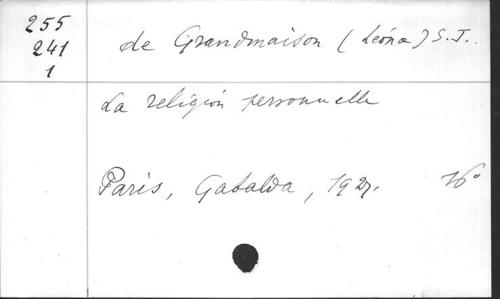 255
241
1
de Grandmaison (Léona) S.J..
La religión personnelle
Paris, Gabalda, 1927. 16°